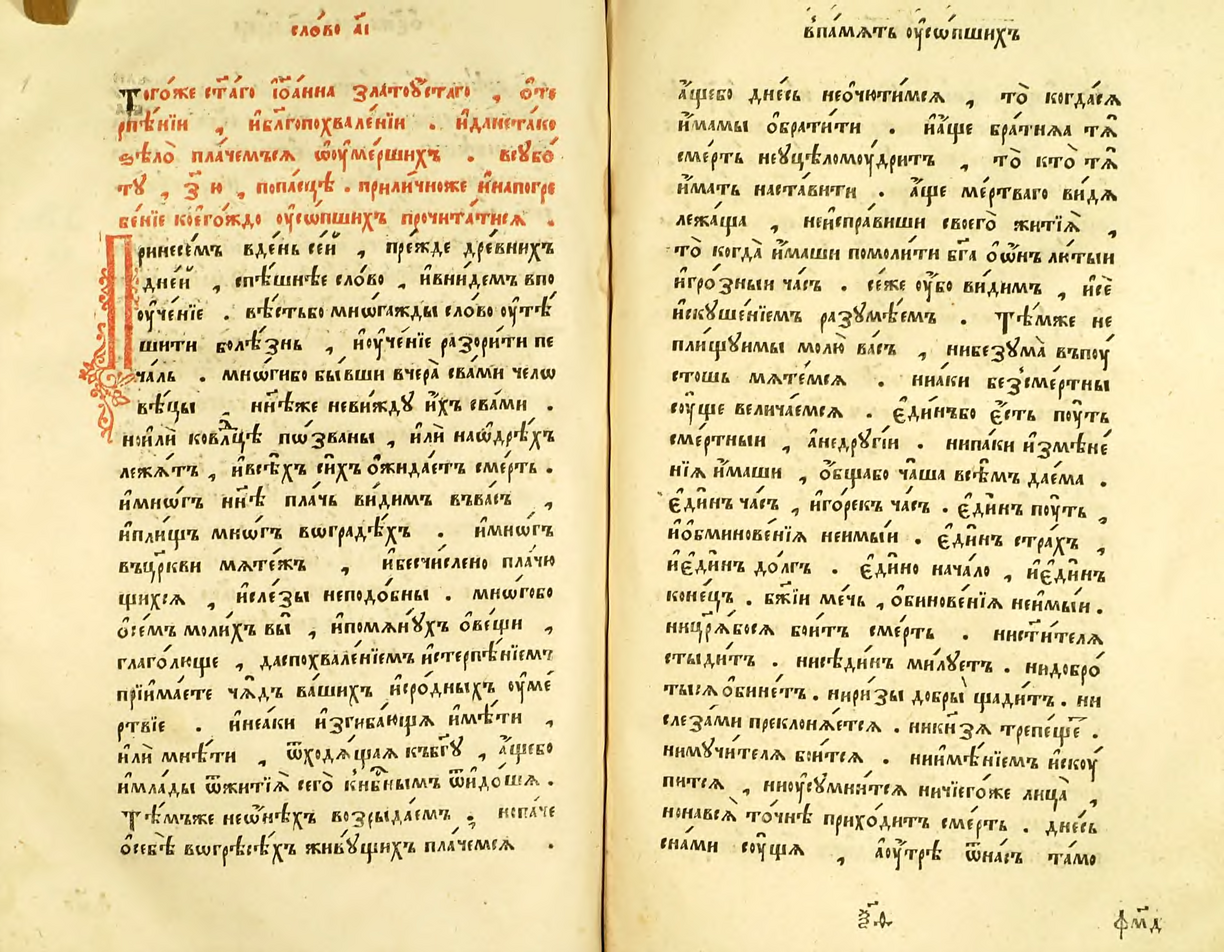 сло́во а҃і
Того́же ст҃а́го іѡа́нна златоꙋ́стаго , ѻ҆те
рпѣ́нїи , и҆бл҃гопохвале́нїи . и҆дли́ста́ко
ѕѣло̀ пла́чемъсѧ ѿоу҆ме́ршихъ . всꙋбо́
тꙋ , з҃ ю , попа́сцѣ . прили́чноже и҆нанапогре
бе́нїе кое́гождо оу҆со́пшихъ прочита́тисѧ .
Принесе́мъ вде́нь се́й , пре́жде дре́внихъ
дне́й , спѣ́шнѣе сло́во , и҆вни́демъ впо
оуче́нїе . вѣ́стьбо мнѡга́жды сло́во оу҆тѣ́
шити болѣ́знь , и҆оуче́нїе разори́ти пе
ча́ль . мнѡгибо бы́вши вчера̀ сва́ми челѡ
вѣ́цы , нн҃ѣже неви́ждꙋ и҆́хъ сва́ми .
но и҆лѝ ковл҃цѣ пѡ́званы , и҆́ли наѻ҆дрѣ́хъ
лежа́тъ , и҆всѣ́хъ си́хъ ѻ҆жида́етъ сме́рть .
и҆мно́гъ нн҃ѣ пла́чь ви́димъ въва́съ ,
и҆пли́щъ мно́гъ вѡгра́дѣхъ . и҆мно́гъ
въцр҃кви мѧте́жъ , и҆бесчи́слено пла́чю
щихсѧ , и҆сле́зы неподо́бны . мно́гобо
ѻ҆се́мъ моли́хъ вы̀ , и҆помѧнꙋ́хъ ѻ҆ве́щи ,
глаго́люще , даспохвале́нїемъ и҆стерпѣ́нїемъ
прїима́ете ча́дъ ва́шихъ и҆сро́дныхъ оу҆ме́
ртвїе . и҆неа́ки и҆згиба́ющѧ и҆мѣ́ти ,
и҆лѝ мнѣ́ти , ѿходѧ́щаѧ къбг҃ꙋ , а҆́щебо
и҆мла́ды ѿжитїѧ̀ сего̀ ѿидо́шѧ .
Тѣ́мъже неѡ҆нѣ́хъ возрыда́емъ , нопа́че
ѻ҆себѣ̀ вогрѣсѣ́хъ живꙋ́щихъ пла́чемсѧ .
впа́мѧть оу҆со́пшихъ
а҆́щебо дне́сь неѻ҆чю́тимсѧ , то̀ когда́сѧ
и҆́мамы ѻ҆брати́ти . и҆а҆́ще бра́тнѧѧ тѧ̀
сме́рть неуцѣломоу́дритъ , то̀ кто̀ тѧ̀
и҆́мать наста́вити . а҆́ще ме́ртваго ви́дѧ
лежа́ща , неи҆спра́виши своего̀ житїѧ̀ ,
то̀ когда̀ и҆́маши помоли́ти бг҃а ѻ҆ѡ҆́нъ лю́тыи
и҆гро́зныи ча́съ . се́же оу҆̀бо ви́димъ , и҆сѐ
и҆скуше́нїемъ разумѣ́емъ . Тѣ́мже не
плищꙋи́мы молю̀ ва́съ , нибезꙋма̀ въпоу́
стошь мѧте́мсѧ . ниа́ки безсме́ртны
соу́ще велича́емсѧ . є҆ди́нъбо є҆́сть поу́ть
сме́ртныи , а҆недрꙋгі́и . нипа́ки и҆змѣне́
нїѧ и҆́маши , ѻ҆́бщабо ча́ша всѣ́мъ дае́ма .
є҆ди́нъ ча́съ , и҆го́рекъ ча́съ . є҆ди́нъ поу́ть ,
и҆ѻ҆бминове́нїѧ неимы́и . є҆ди́нъ стра́хъ ,
и҆є҆ди́нъ до́лгъ . є҆ди́но нача́ло , и҆є҆ди́нъ
коне́цъ . бж҃їи ме́чь , ѻ҆бинове́нїѧ неимы́и .
ницр҃ѧ́босѧ бои́тъ сме́рть . нист҃и́телѧ
стыди́тъ . нисѣди́нъ ми́лꙋетъ . нидобро́
тысѧѻ҆бине́тъ . нири́зы добры̀ щади́тъ . ни
слеза́ми преклонѧ́етсѧ . никн҃зѧ трепе́щетъ .
нимꙋчи́телѧ бои́тсѧ . ниимѣ́нїемъ и҆скоу́
питсѧ , ниоу҆сꙋмни́тсѧ ничїего́же лица̀ ,
нонавсѧ̀ то́чнѣ прихо́дитъ сме́рть . дне́сь
сна́ми соу́щѧ , а҆оу́трѣ ѿна́съ та́мо
фм҃д